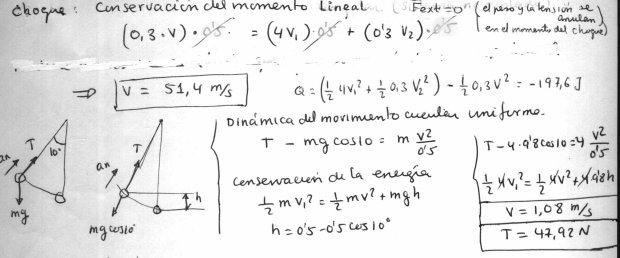 choque: Conservación del momento Lineal Fext=0 (el peso y la tensión se anulan en el momento del choque)
(0,3·V)·0'5 = (4V₁)·0'5 + (0'3 V₂)·0'5
⇒ V = 51,4 m/s
Q = (½ 4V₁² + ½ 0,3 V₂²) - ½ 0,3 V² = -197,6 J
Dinámica del movimiento circular uniforme.
T - mg cos10 = m V²/0'5
conservación de la energía
½ m V₁² = ½ m V² + mgh
h = 0'5 - 0'5 cos 10°
T - 4·9'8 cos10 = 4 V²/0'5
½ 4V₁² = ½ 4V² + 4·9'8h
V = 1,08 m/s
T = 47,92 N
T
10°
an
mg
T
an
h
mg cos10